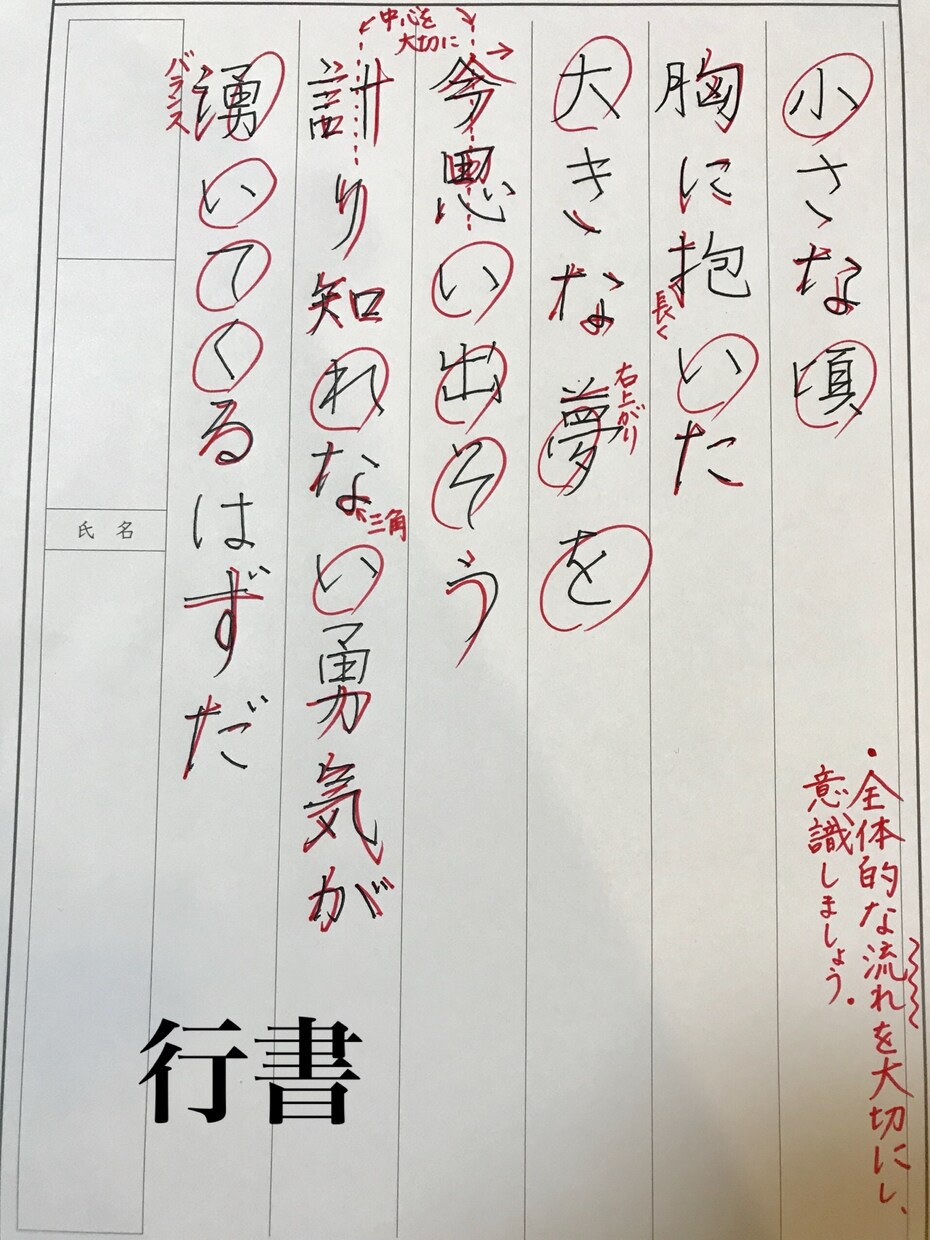 小さな頃
胸に抱いた
大きな夢を
今思い出そう
計り知れない勇気が
湧いてくるはずだ
中心を
大切に
バランス
長く
右上がり
三角
・全体的な流れを大切にし、
意識しましょう。
氏名
行書